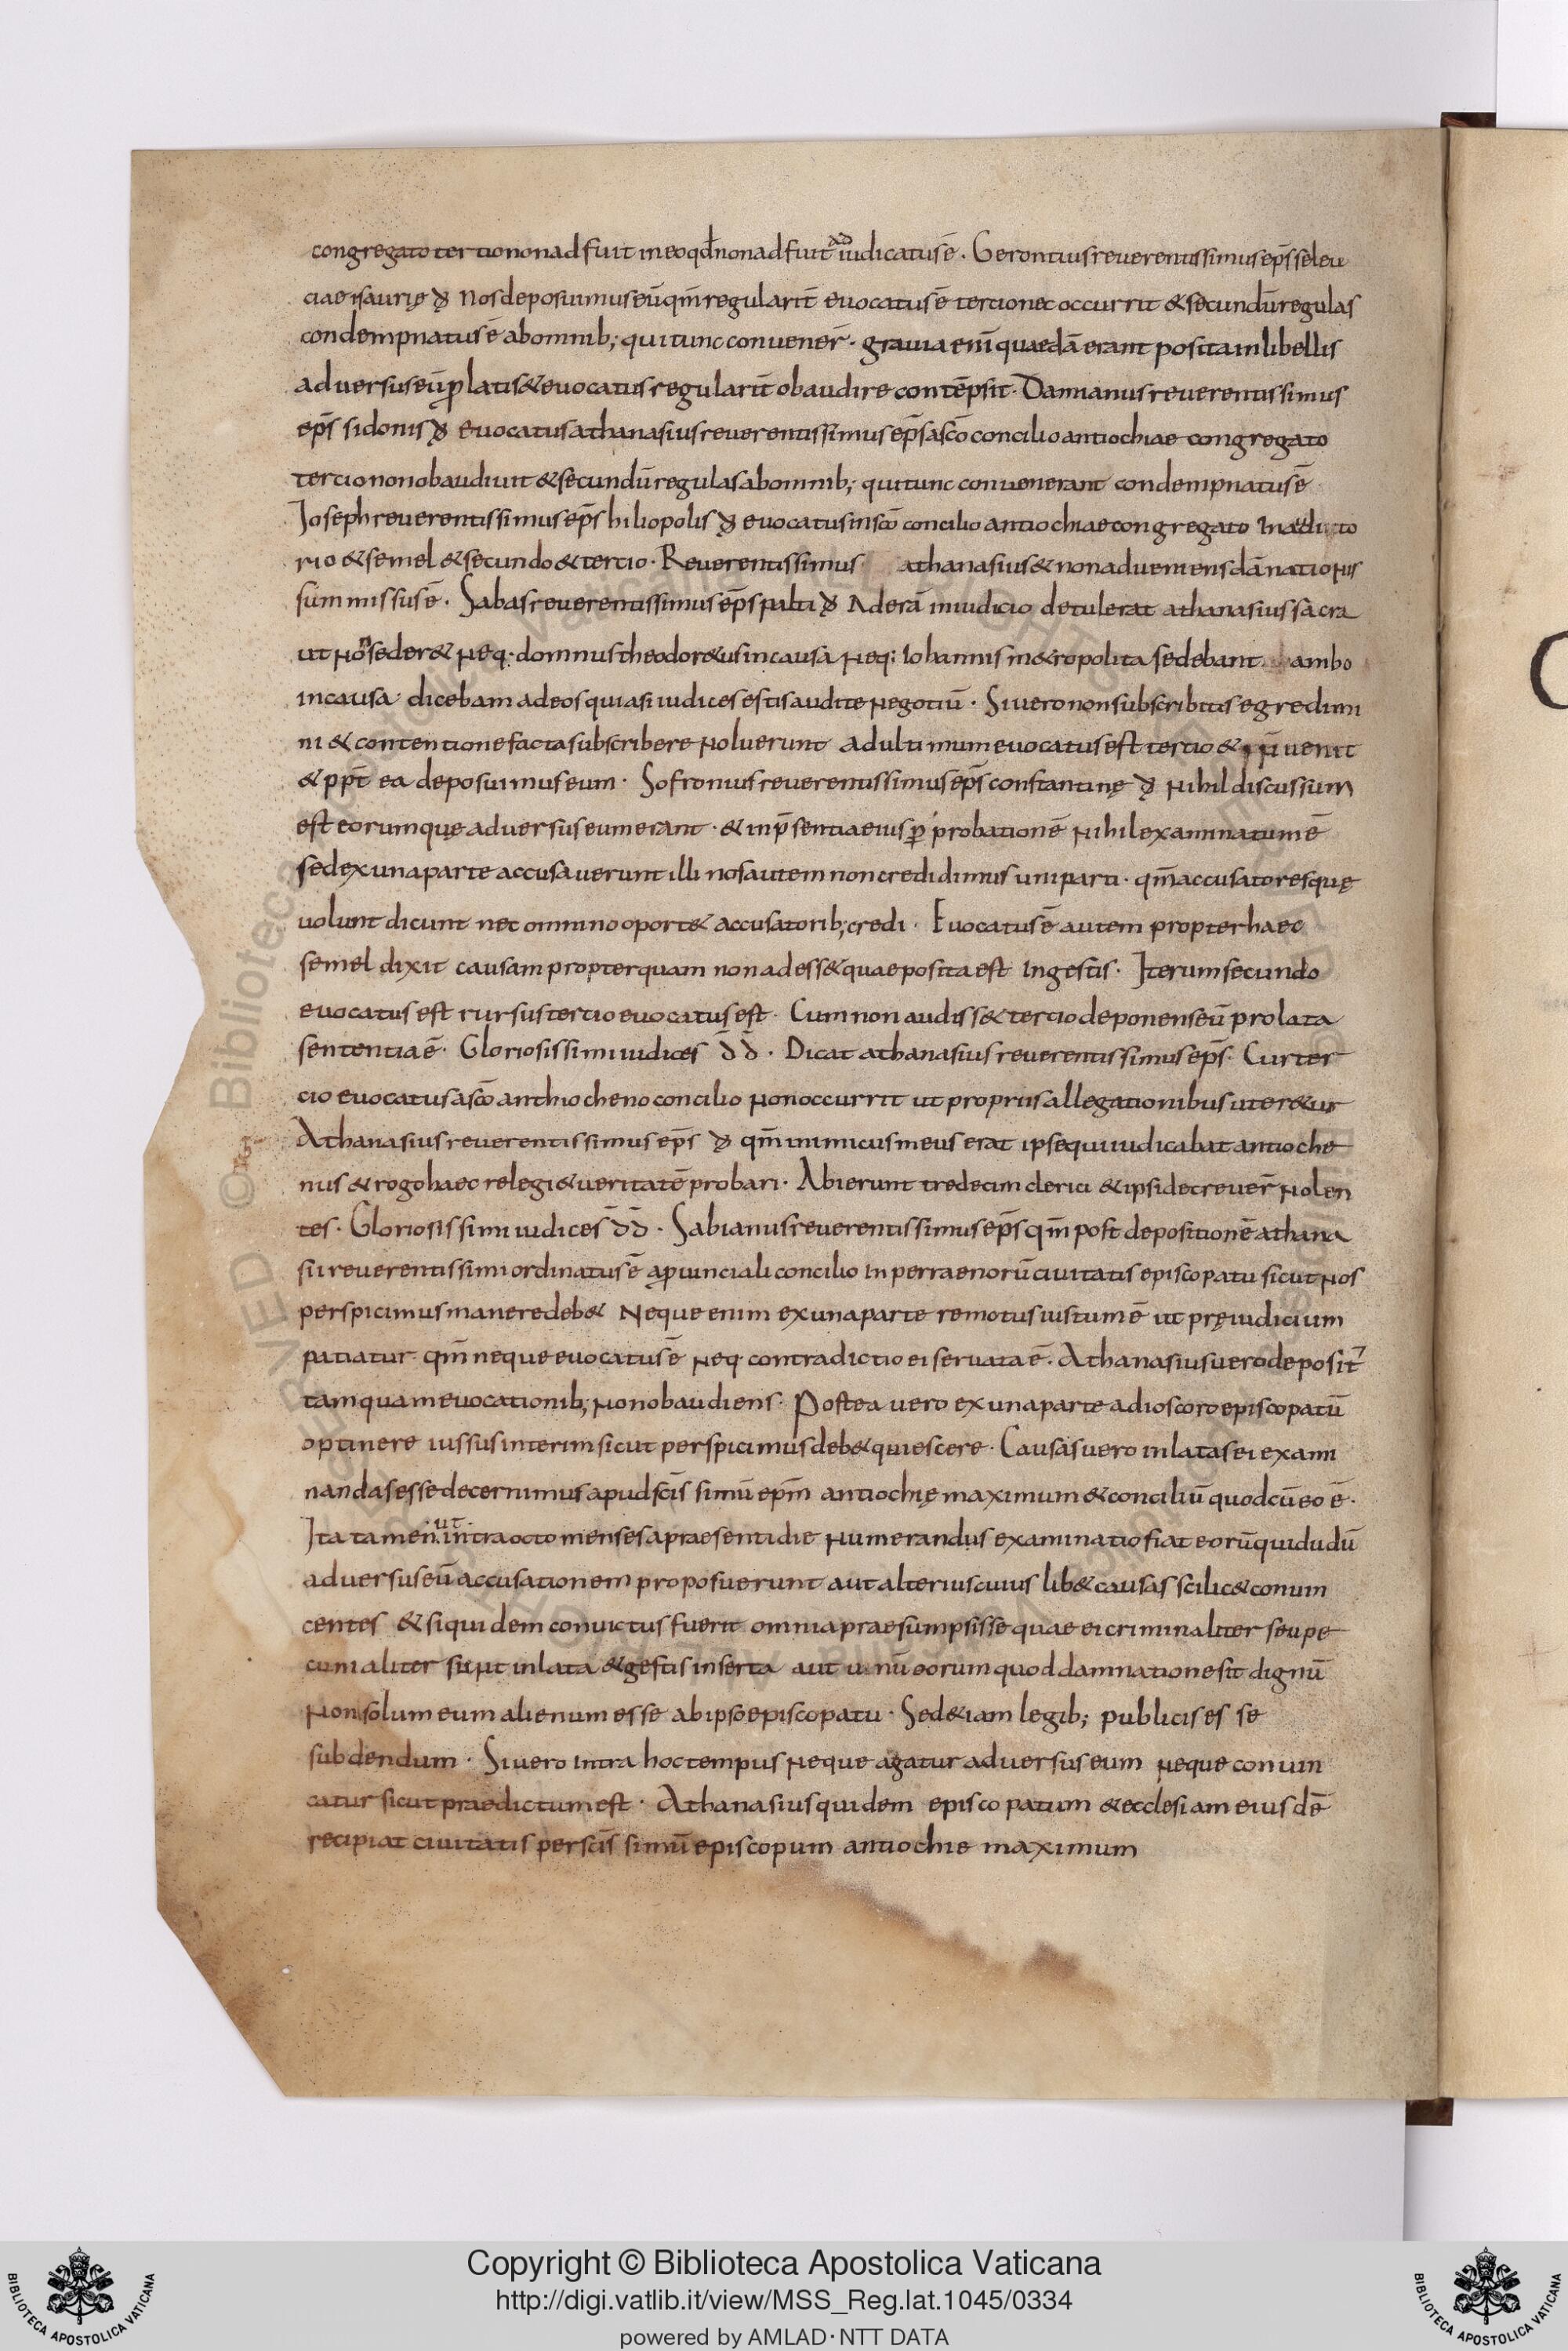 congregato tertio non adfuit in eo qđ non adfuit ad iudicatus ē. Gerontius reuerentissimus ep̄s seleu
ciae isaurię đ Nos deposuimus eū qm̄ regularit̄ euocatus ē tercio nec occurrit & secundū regulas
condempnatus ē ab omnib; qui tunc conuener̄. grauia enī quaedā erant posita in libellis
aduersus eū ꝓlatis & euocatus regularit̄ obaudire contēpsit. Damianus reuerentissimus
ep̄s sidonis đ Euocatus athanasius reuerentissimus ep̄s a sc̄o concilio antiochiae congregato
tercio non obaudiuit & secundū regulas ab omnib; qui tunc conuenerant condempnatus ē
Joseph reuerentissimus ep̄s hiliopolis đ euocatus in sc̄o concilio antiochiae congregato In
rio & semel & secundo & tercio. Reuerentissimus athanasius & non adueniens dānationis
summissus ē. Sabas reuerentissimus ep̄s palti đ Aderā in iudicio detulerat athanasius sacra
ut non seder& Neq. domnus theodor&us in causa Neq; Iohannis m&ropolita sedebant ambo
in causa dicebam ad eos quiasi iudices estis audite Negotiū. Si uero non subscribitis egredimi
ni & contentione facta subscribere Noluerunt ad ultimum euocatus est tertio & n̄ uenit
& ppt̄ ea deposuimus eum. Sofronius reuerentissimus ep̄s constantinę đ Nihil discussum
est eorum quę aduersus eum erant. & in p̄sentia eius ꝑ probationē Nihil examinatum ē
sed ex una parte accusauerunt illi nos autem non credidimus uni parti. qm̄ accusatores quę
uolunt dicunt nec omnino oport& accusatorib; credi. Euocatus ē autem propter haec
semel dixit causam propter quam non adess& quae posita est In gestis. Iterum secundo
euocatus est rursus tercio euocatus est. Cum non audiss& tercio deponens eū prolata
sententia ē. Gloriosissimi iudices d̄d̄. Dicat athanasius reuerentissimus ep̄s. Cur ter
cio euocatus a sc̄o anthiocheno concilio Non occurrit ut propriis allegationibus uter&ur
Athanasius reuerentissimus ep̄s đ qm̄ inimicus meus erat ipse qui iudicabat antioche
nus & rogo haec relegi & ueritatē probari. Abierunt tredecim clerici & ipsi decreuer̄ Nolen
tes. Gloriosissimi iudices d̄d̄. Sabianus reuerentissimus ep̄s qm̄ post depositionē athana
sii reuerentissimi ordinatus ē a ꝓuinciali concilio In perraenorū ciuitatis episcopatu sicut Nos
perspicimus manere deb& Neque enim ex una parte remotus iustum ē ut pręiudicium
patiatur. qm̄ neque euocatus ē Neq. contradictio ei seruata ē. Athanasius uero deposit̄
tamquam euocationib; Non obaudiens. Postea uero ex una parte a dioscoro episcopatū
optinere iussus interim sicut perspicimus deb& quiescere. Causas uero inlatas ei exami
nandas esse decernimus apud sc̄issimū ep̄m antiochię maximum & conciliū quod cū eo ē.
Ita tamen ut intra octo menses a praesenti die Numerandus examinatio fiat eorū qui dudū
aduersus eū accusationem proposuerunt aut alterius cuius lib& causas scilic& conuin
centes & siquidem conuictus fuerit omnia praesumpsisse quae ei criminaliter seu pe
cunialiter sunt inlata & gestis inserta aut unū eorum quod damnatione sit dignū
Non solum eum alienum esse ab ipso episcopatu. Sed &iam legib; publicis esse
subdendum. Si uero Intra hoc tempus Neque agatur aduersus eum Neque conuin
catur sicut praedictum est. Athanasius quidem episcopatum & ecclesiam eiusdē
recipiat ciuitatis per sc̄issimū episcopum antiochie maximum
Copyright © Biblioteca Apostolica Vaticana
http://digi.vatlib.it/view/MSS_Reg.lat.1045/0334
powered by AMLAD·NTT DATA
BIBLIOTECA APOSTOLICA VATICANA
BIBLIOTECA APOSTOLICA VATICANA